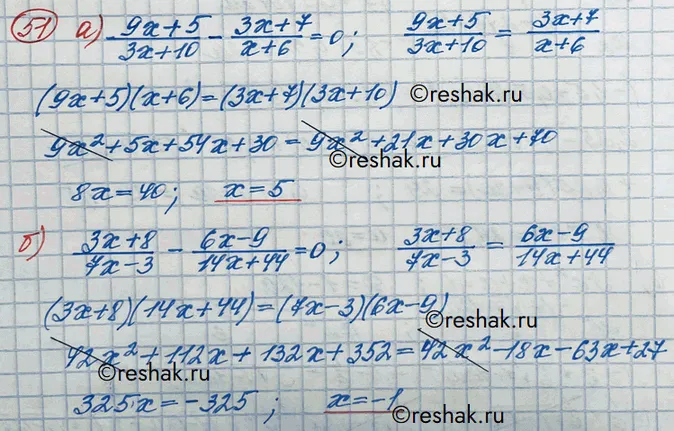 51 а) (9x+5)/(3x+10) - (3x+7)/(x+6) = 0; (9x+5)/(3x+10) = (3x+7)/(x+6)
(9x+5)(x+6)=(3x+7)(3x+10) ©reshak.ru
9x²+5x+54x+30=9x²+21x+30x+70
©reshak.ru
8x=40; x=5
б) (3x+8)/(7x-3) - (6x-9)/(14x+44) = 0; (3x+8)/(7x-3) = (6x-9)/(14x+44)
(3x+8)(14x+44)=(7x-3)(6x-9)
©reshak.ru
42x²+112x+132x+352=42x²-18x-63x+27
©reshak.ru
325x=-325; x=-1